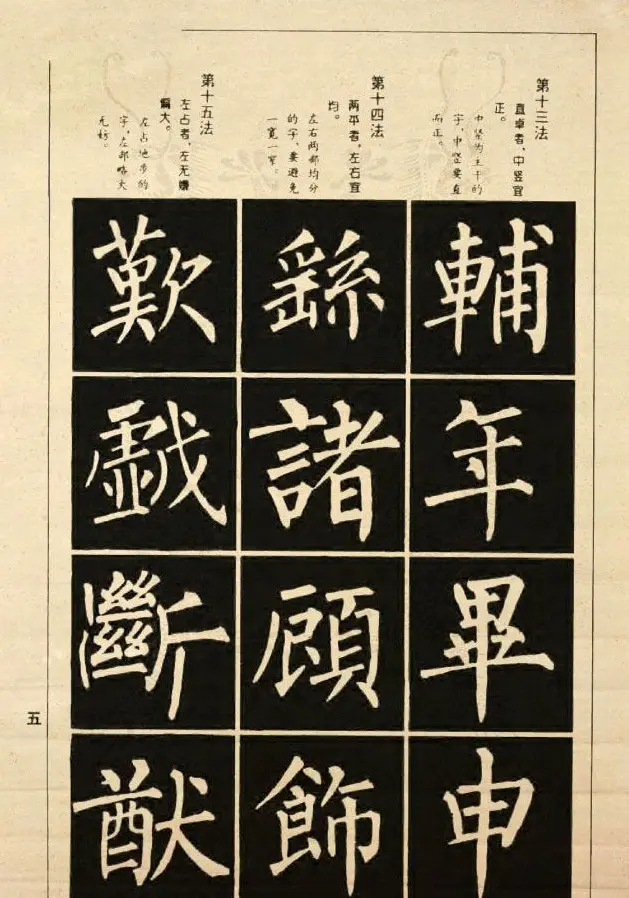 第十三法
直卓者，中竖宜
正。
中竖为主干的
字，中竖要直
而正。
輔
年
畢
申
第十四法
两平者，左右宜
均。
左右两部均分
的字，要避免
一宽一窄。
繇
諸
顧
飾
第十五法
左占者，左无嫌
偏大。
左占地步的
字，左部略大
无妨。
歎
戯
斷
猷
五